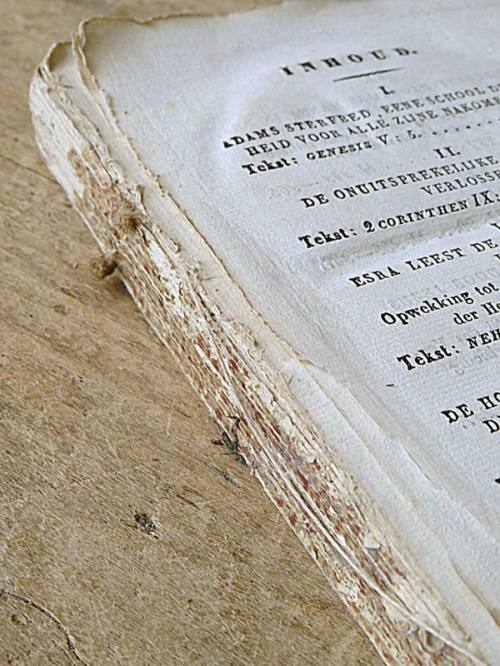 INHOUD.
I.
ADAMS STERFBED, EENE SCHOOL
HEID VOOR ALLE ZIJNE NAKOM
Tekst: GENESIS V: 5.
II.
DE ONUITSPREKELIJKE
VERLOSSE
Tekst: 2 CORINTHEN IX:
ESRA LEEST DE
Opwekking tot
der He
Tekst: NEH
DE HO
D